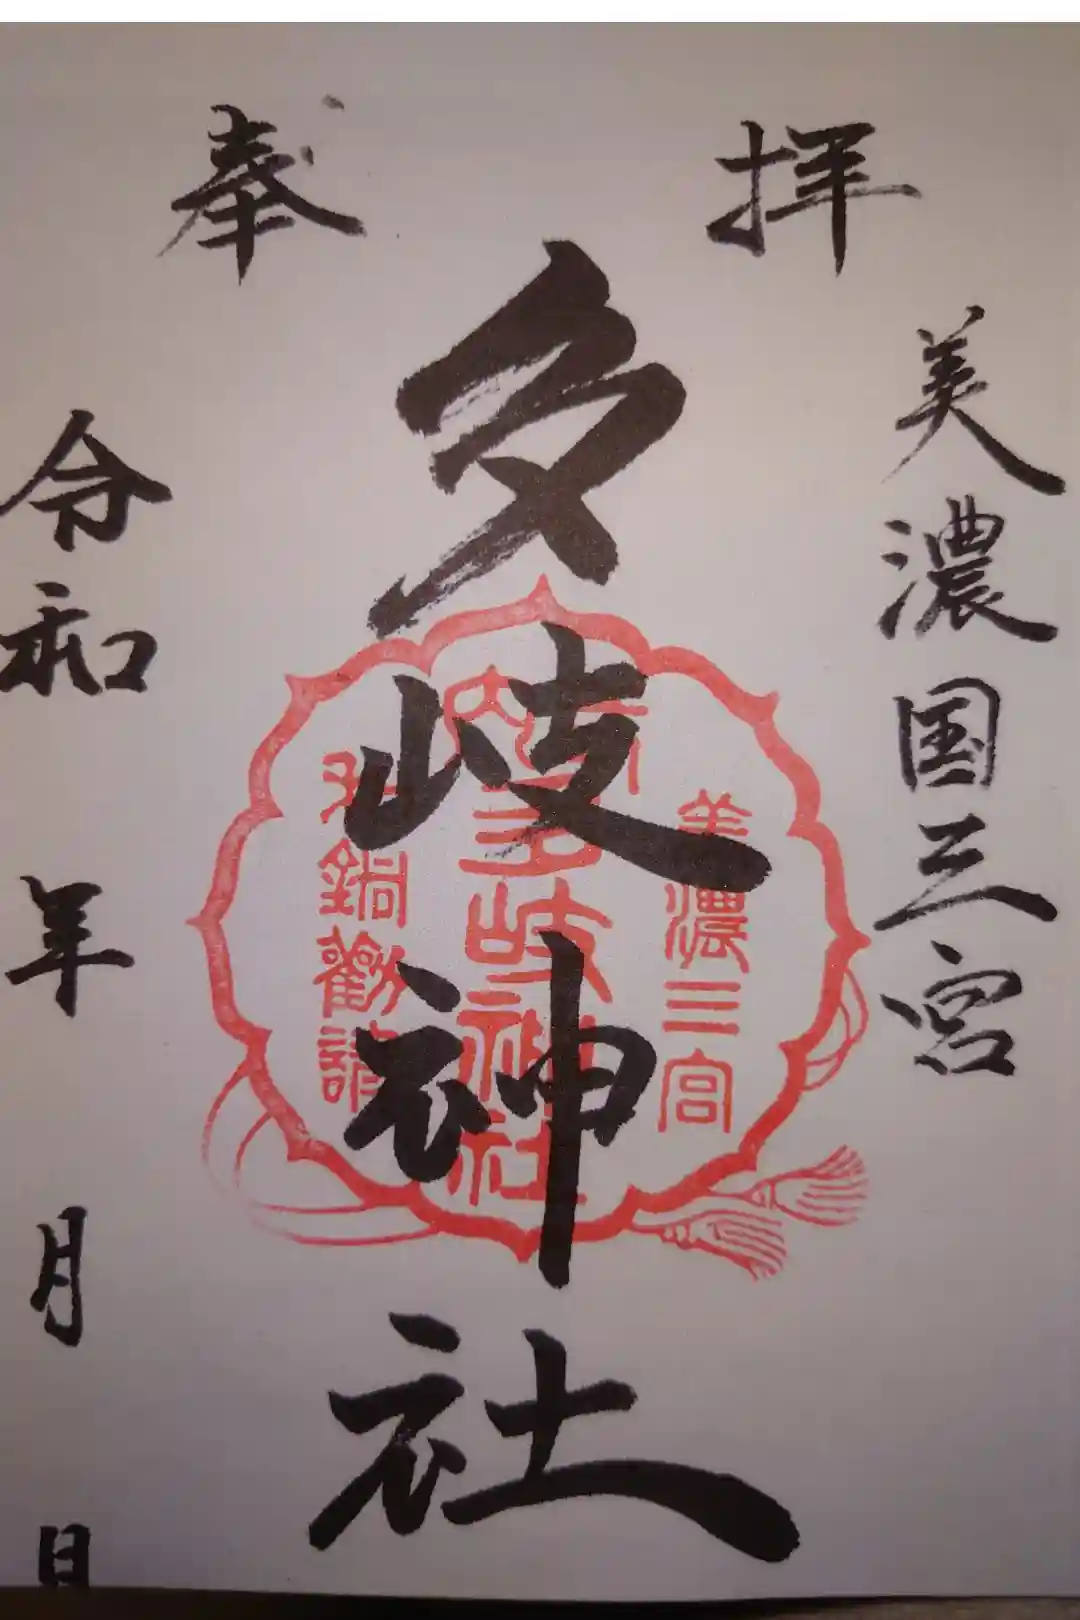 奉拝
美濃国三宮
多岐神社
令和 年 月 日
美濃三宮
多岐神社
勸請